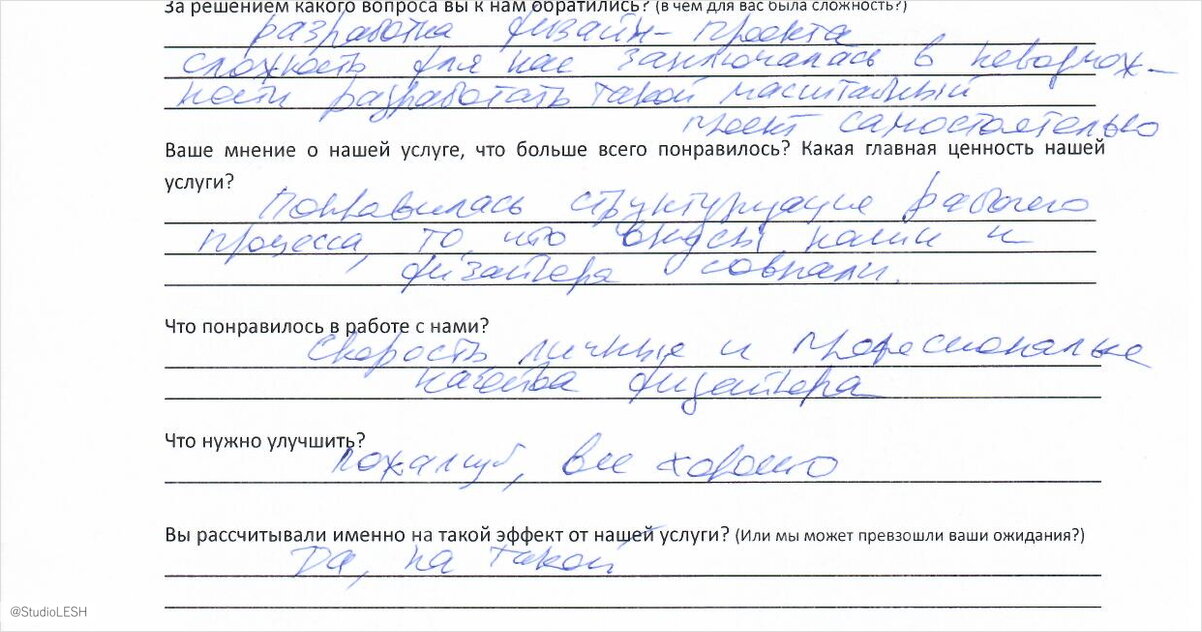 За решением какого вопроса вы к нам обратились? (в чем для вас была сложность?)
разработка дизайн-проекта
сложность для нас заключалась в невозмож-
ности разработать такой масштабный
проект самостоятельно
Ваше мнение о нашей услуге, что больше всего понравилось? Какая главная ценность нашей
услуги?
Понравилась структуризация рабочего
процесса, то, что вкусы наши и
дизайнера совпали.
Что понравилось в работе с нами?
Скорость личные и професиональные
качества дизайнера
Что нужно улучшить?
Пожалуй, все хорошо
Вы рассчитывали именно на такой эффект от нашей услуги? (Или мы может превзошли ваши ожидания?)
Да, на такой
@StudioLESH